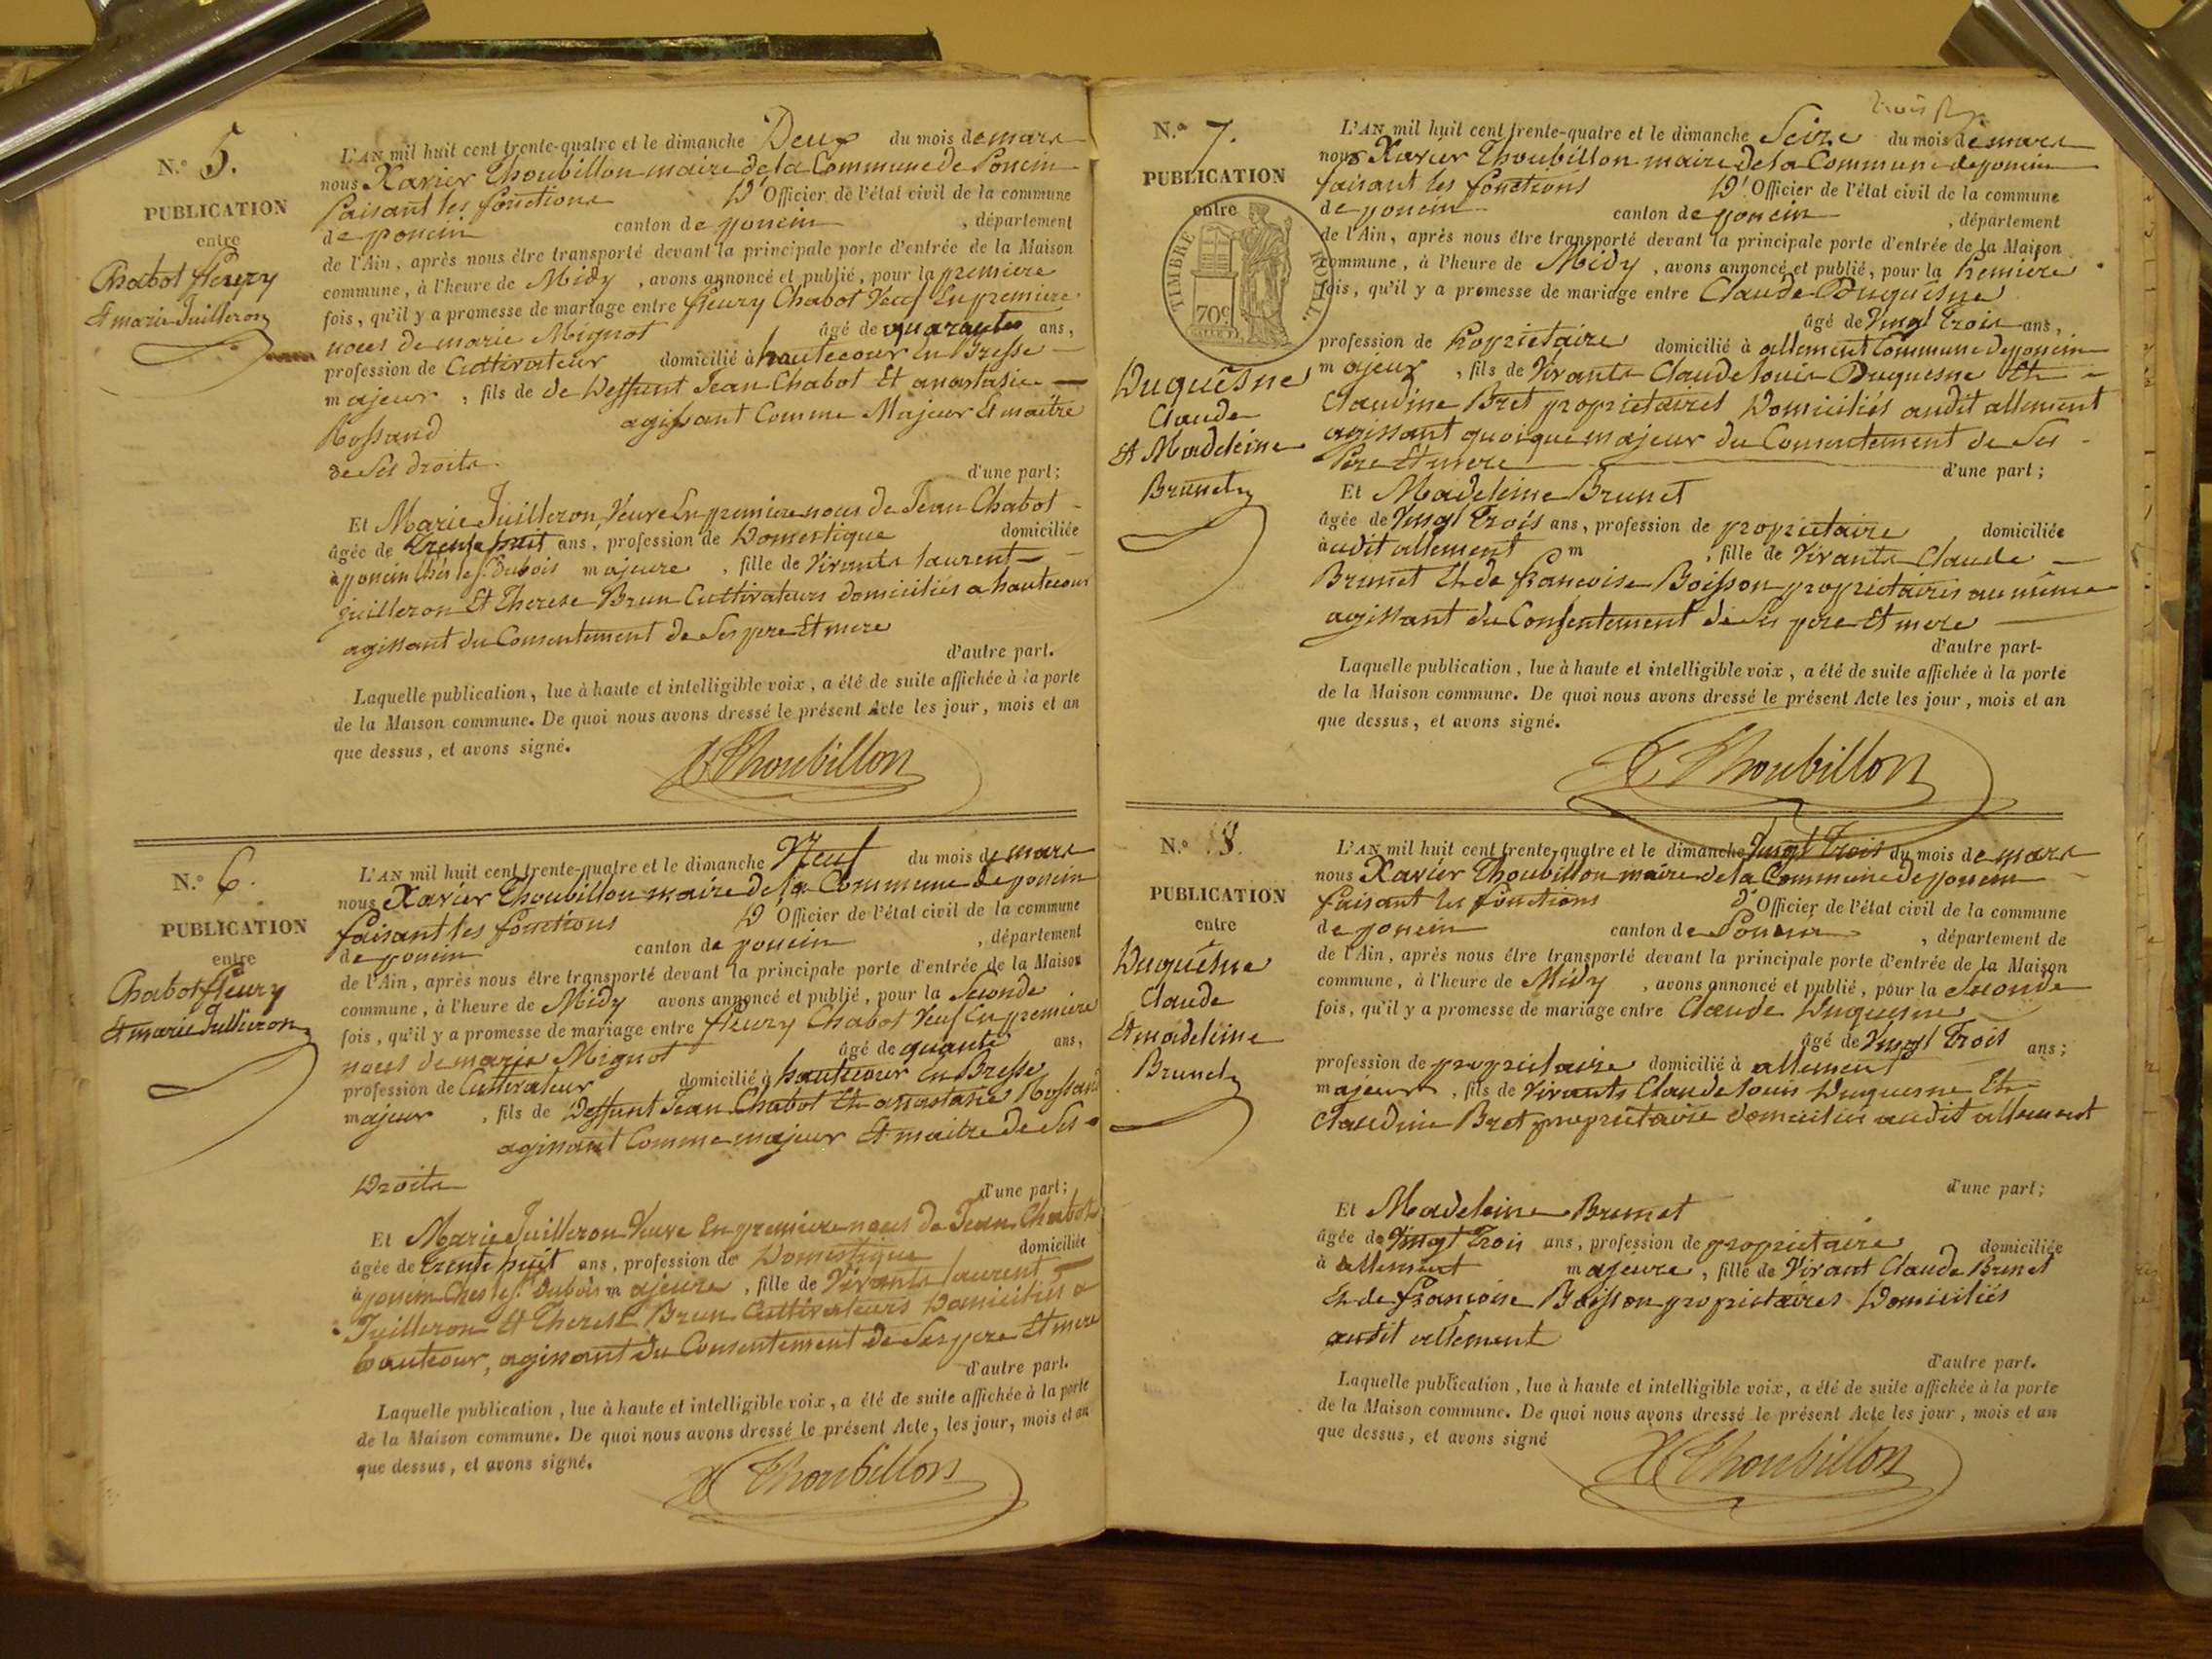 N.° 5.
PUBLICATION
entre
Chabot fleury
Et marie Juilleron
L'AN mil huit cent trente-quatre et le dimanche Deux du mois de mars
nous Xavier Thoubillon maire de la Commune de Poncin
faisant les fonctions D' Officier de l'état civil de la commune
de poncin canton de poncin , département
de l'Ain, après nous être transporté devant la principale porte d'entrée de la Maison
commune, à l'heure de Midy , avons annoncé et publié, pour la premiere
fois, qu'il y a promesse de mariage entre fleury Chabot Veuf En premiere
noces de marie Mignot âgé de quarante ans,
profession de Cultivateur domicilié à hautecour En Bresse
majeur , fils de de Deffunt Jean Chabot Et anastasie
Rossand agissant Comme Majeur Et maitre
de Ses droits
d'une part;
Et Marie Juilleron, Veuve En premiere noces de Jean Chabot
âgée de trente huit ans, profession de Domestique domiciliée
à poncin Chés le Sr. Dubois majeure , fille de Vivants laurent
juilleron Et Therese Brun Cultivateurs domiciliés a hautecour
agissant du Consentement de Ses pere Et mere
d'autre part.
Laquelle publication, lue à haute et intelligible voix, a été de suite affichée à la porte
de la Maison commune. De quoi nous avons dressé le présent Acte les jour, mois et an
que dessus, et avons signé.
X Thoubillon
N.° 6.
PUBLICATION
entre
Chabot fleury
Et marie Jullieron
L'AN mil huit cent trente-quatre et le dimanche Neuf du mois de mars
nous Xavier Thoubillon maire de la Commune de poncin
faisant les fonctions D' Officier de l'état civil de la commune
de poncin canton de poncin , département
de l'Ain, après nous être transporté devant la principale porte d'entrée de la Maison
commune, à l'heure de Midy avons annoncé et publié, pour la Seconde
fois, qu'il y a promesse de mariage entre fleury Chabot Veuf En premiere
noces de marie Mignot âgé de quante ans,
profession de Cultivateur domicilié à hautecour En Bresse
majeur , fils de Deffunt Jean Chabot Et anastasie Rossand
agissant Comme majeur Et maitre de Ses
Droits
d'une part;
Et Marie Juilleron Veuve En premiere noces de Jean Chabot
âgée de trente huit ans, profession de Domestique domiciliée
à poncin Ches le Sr. Dubois majeure , fille de Vivants laurent
Juilleron Et Therese Brun Cultivateurs Domiciliés a
hautecour, agissant du Consentement de Ses pere Et mere
d'autre part.
Laquelle publication, lue à haute et intelligible voix, a été de suite affichée à la porte
de la Maison commune. De quoi nous avons dressé le présent Acte, les jour, mois et an
que dessus, et avons signé.
X Thoubillon
N.° 7.
PUBLICATION
entre
TIMBRE ROYAL.
70c
Duquesne
Claude
Et Madeleine
Brunet
L'AN mil huit cent trente-quatre et le dimanche Seize du mois de mars
nous Xavier Thoubillon maire de la Commune de poncin
faisant les fonctions D' Officier de l'état civil de la commune
de poncin canton de poncin , département
de l'Ain, après nous être transporté devant la principale porte d'entrée de la Maison
commune, à l'heure de Midy , avons annoncé et publié, pour la Premiere
fois, qu'il y a promesse de mariage entre Claude Duquesne
âgé de Vingt trois ans,
profession de Proprietaire domicilié à allement Commune de poncin
majeur , fils de Vivants Claude louis Duquesne Et
Claudine Bret proprietaires Domiciliés audit allement
agissant quoique majeur du Consentement de Ses
Pere Et mere d'une part;
Et Madeleine Brunet
âgée de Vingt trois ans, profession de proprietaire domiciliée
audit allement m , fille de Vivants Claude
Brunet Et de francoise Boisson proprietaires au même
agissant du Consentement de Ses pere Et mere
d'autre part-
Laquelle publication, lue à haute et intelligible voix, a été de suite affichée à la porte
de la Maison commune. De quoi nous avons dressé le présent Acte les jour, mois et an
que dessus, et avons signé.
X Thoubillon
N.° 8.
PUBLICATION
entre
Duquesne
Claude
Et madeleine
Brunet
L'AN mil huit cent trente-quatre et le dimanche Vingt trois du mois de mars
nous Xavier Thoubillon maire de la Commune de poncin
faisant les fonctions d' Officier de l'état civil de la commune
de poncin canton de Poncin , département de
de l'Ain, après nous être transporté devant la principale porte d'entrée de la Maison
commune, à l'heure de Midy , avons annoncé et publié, pour la Seconde
fois, qu'il y a promesse de mariage entre Claude Duquesne
âgé de Vingt trois ans;
profession de proprietaire domicilié à allement
majeur , fils de Vivants Claude louis Duquesne Et
Claudine Bret proprietaire domiciliés audit allement
d'une part;
Et Madeleine Brunet
âgée de Vingt trois ans, profession de proprietaire domiciliée
à allement majeure , fille de Vivant Claude Brunet
Et de francoise Boisson proprietaires Domiciliés
audit allement
d'autre part.
Laquelle publication, lue à haute et intelligible voix, a été de suite affichée à la porte
de la Maison commune. De quoi nous avons dressé le présent Acte les jour, mois et an
que dessus, et avons signé
X Thoubillon